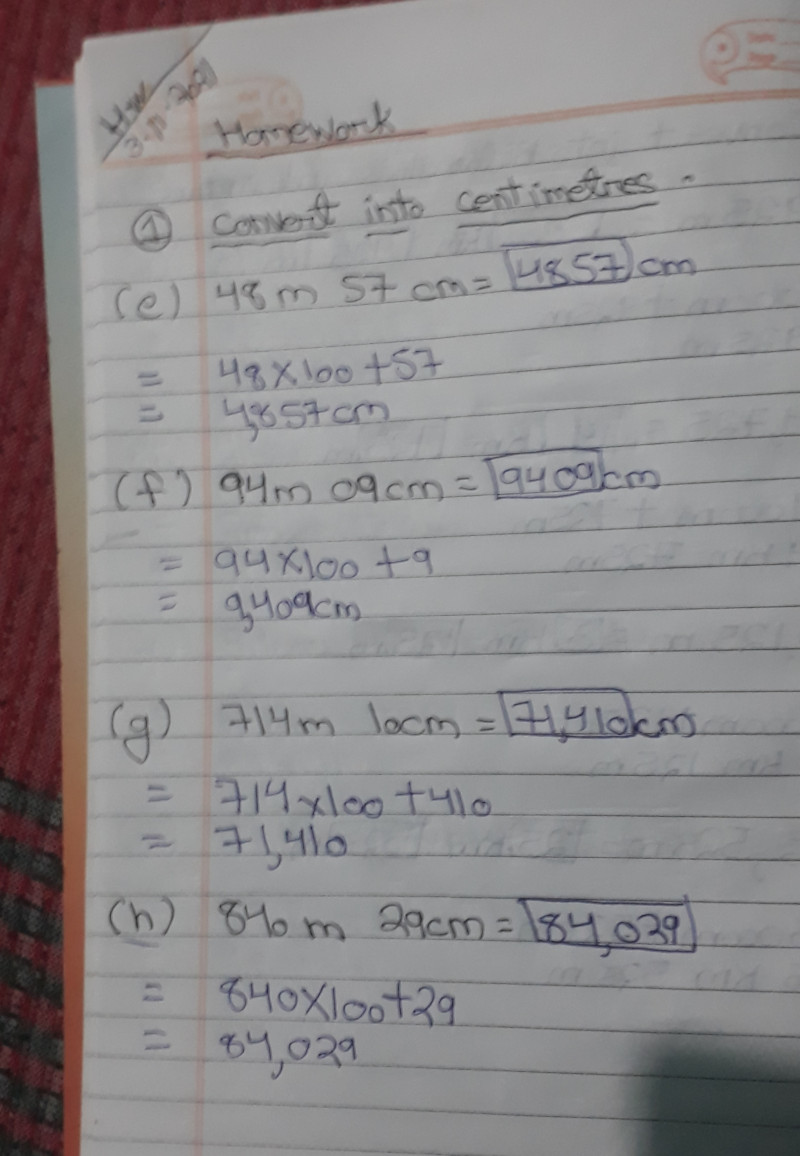 H.W
Homework
① Convert into centimetres.
(e) 48m 57cm = 4857 cm
= 48×100+57
= 4,857cm
(f) 94m 09cm = 9409 cm
= 94×100+9
= 9,409cm
(g) 714m 10cm = 71,410 cm
= 714×100+410
= 71,410
(h) 840m 29cm = 84,029
= 840×100+29
= 84,029